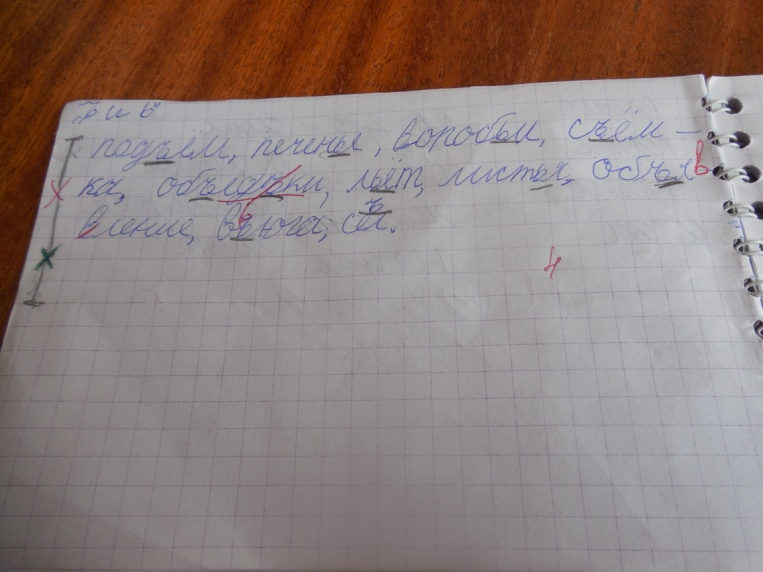 ъ и ь
подъём, печенье, воробьи, съём-
ка, объедъки, льёт, листья, объяв
вление, въюга, съел.
4